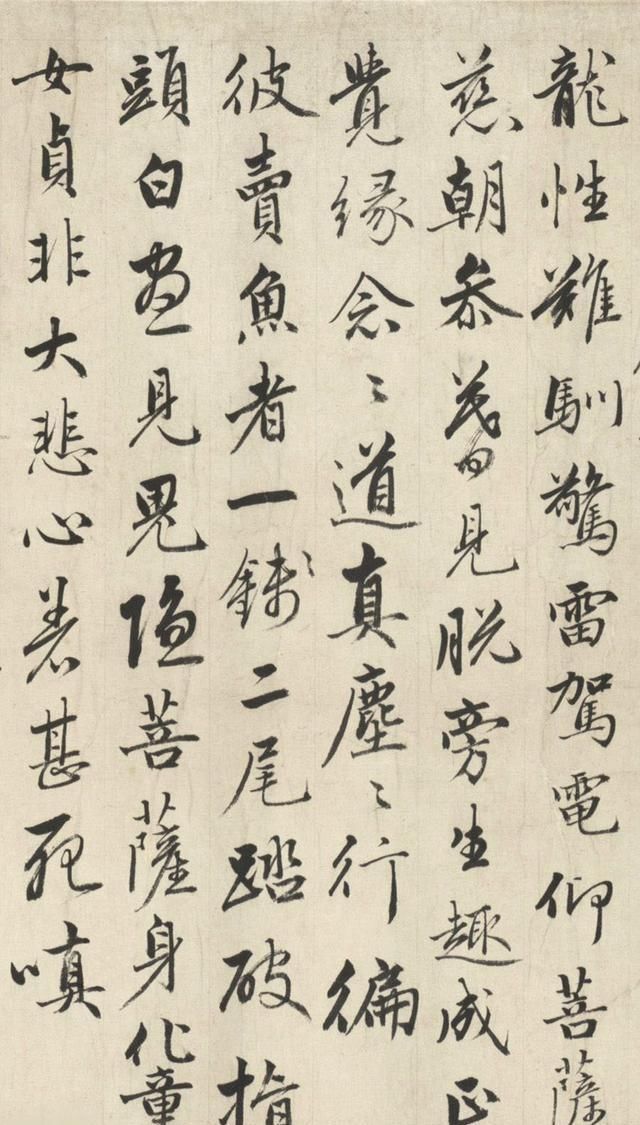 龍性難馴驚雷駕電仰菩薩
慈朝叅暮見脫旁生趣成正
覺緣念〻道真塵〻行徧
彼賣魚者一錢二尾踏破指
頭白晝見鬼隱菩薩身化童
女貞非大悲心著甚死嗔